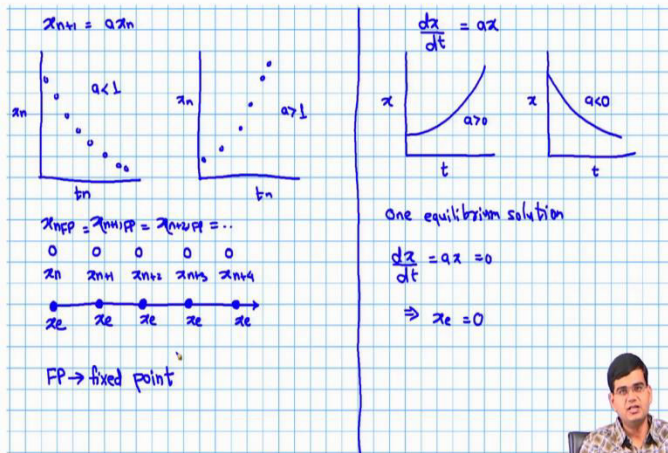 xn+1 = axn
xn
a<1
tn
xn
a>1
tn
xnFP = x(n+1)FP = x(n+2)FP = ..
0 0 0 0 0
xn xn+1 xn+2 xn+3 xn+4
xe xe xe xe xe
FP → fixed point
dx/dt = ax
x
a>0
t
x
a<0
t
One equilibrium solution
dx/dt = ax = 0
⇒ xe = 0